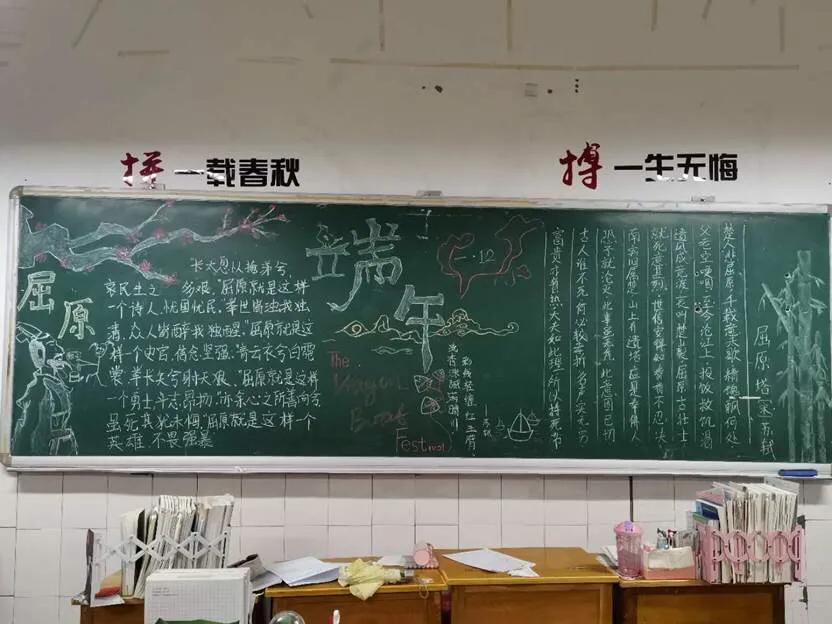 拼 一载春秋
搏 一生无悔
屈原
长太息以掩涕兮,
哀民生之多艰,"屈原就是这样
一个诗人,忧国忧民。"举世皆浊我独
清,众人皆醉我独醒"屈原就是这
样一个史官,信念坚强."青云衣兮白霓
裳,举长矢兮射天狼."屈原就是这样
一个勇士,斗志昂扬."亦余心之所善兮
虽死其犹未悔"屈原就是这样一个
英雄,不畏强暴
端午
The
Dragon
Boat
Festival
彩线轻缠红玉臂
流香涨腻满晴川
—苏轼
屈原塔 宋 苏轼
楚人悲屈原,千载意未歇,精魂飘何处
父老空哽咽,至今沧江上,投饭救饥渴
遗风成竞渡,哀叫楚山裂,屈原古壮士
就死意甚烈,世俗安得知,眷眷不忍决
南宾旧属楚,山上有遗塔,应是奉佛人
恐子就沦灭,此事虽无凭,此意固已切
古人谁不死,何必较考折,名声实无穷
富贵亦暂热,大夫知此理,所以持死节